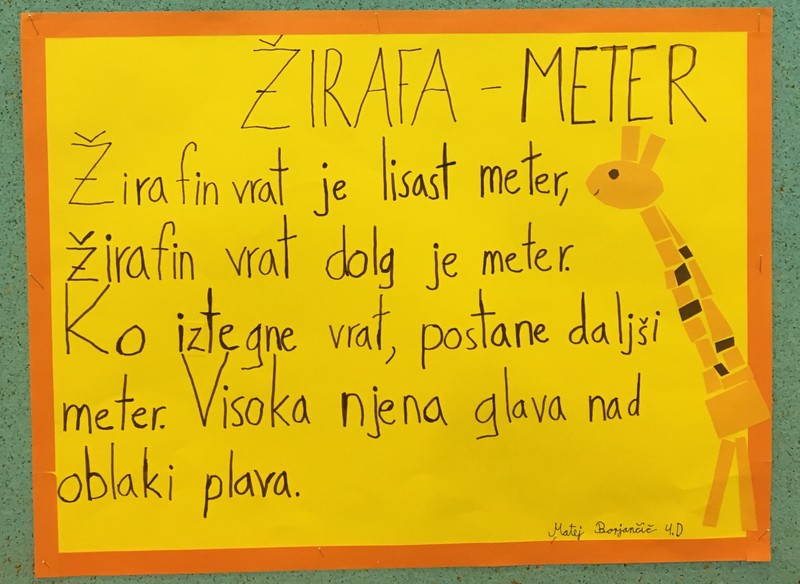 ŽIRAFA - METER
Žirafin vrat je lisast meter,
žirafin vrat dolg je meter.
Ko iztegne vrat, postane daljši
meter. Visoka njena glava nad
oblaki plava.
Matej Borjančič 4.D